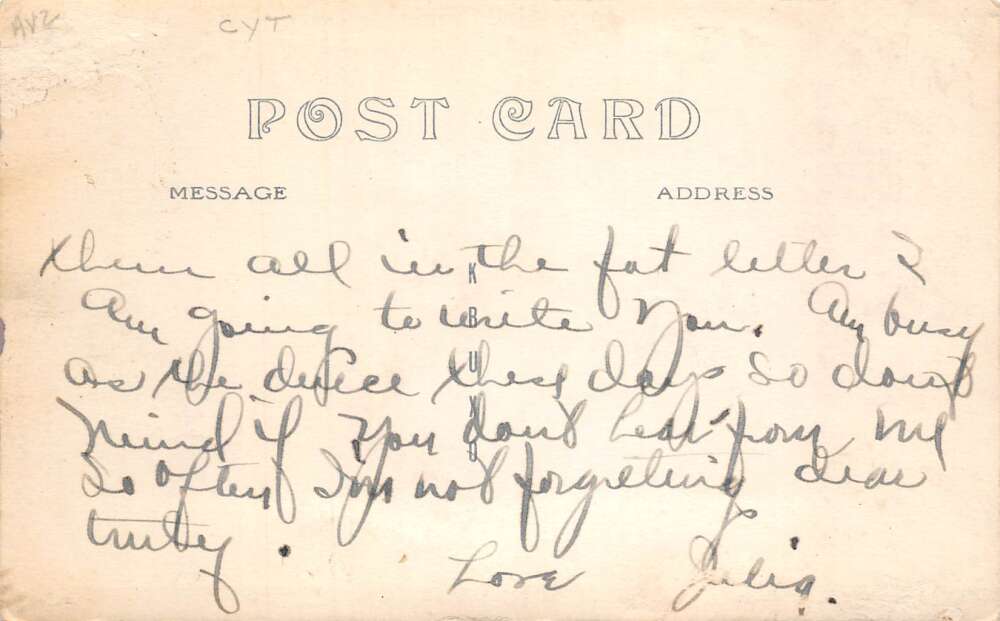 AV2 CYT
POST CARD
MESSAGE ADDRESS
them all in the fat letter I
Am going to write you. Am busy
as the duece these days so dont
mind if you dont hear from me
so often Im not forgetting dear
truly.
Love Julia.